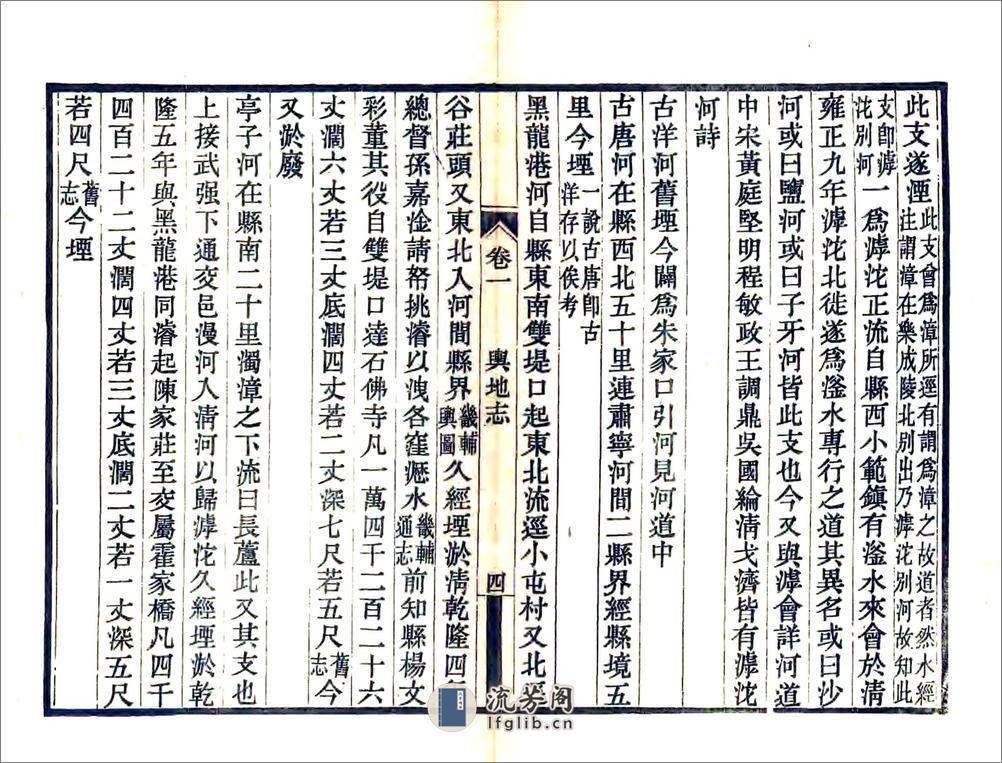 此支遂湮此支會爲漳所逕有謂爲漳之故道者然水經注謂漳在樂成陵北別出乃滹沱別河故知此
支卽滹沱別河一爲滹沱正流自縣西小範鎭有滏水來會於淸
雍正九年滹沱北徙遂爲滏水專行之道其異名或曰沙
河或曰鹽河或曰子牙河皆此支也今又與滹會詳河道
中宋黃庭堅明程敏政王調鼎吳國綸淸戈濟皆有滹沱
河詩
古洋河舊堙今闢爲朱家口引河見河道中
古唐河在縣西北五十里連肅寧河間二縣界經縣境五
里今堙一說古唐卽古洋存以俟考
黑龍港河自縣東南雙堤口起東北流逕小屯村又北逕
卷一 輿地志 四
谷莊頭又東北入河間縣界畿輔輿圖久經堙淤淸乾隆四年
總督孫嘉淦請帑挑濬以洩各窪瀝水畿輔通志前知縣楊文
彩董其役自雙堤口達石佛寺凡一萬四千二百二十六
丈濶六丈若三丈底濶四丈若二丈深七尺若五尺舊志今
又淤廢
亭子河在縣南二十里濁漳之下流曰長蘆此又其支也
上接武强下通交邑漫河入淸河以歸滹沱久經堙淤乾
隆五年與黑龍港同濬起陳家莊至交屬霍家橋凡四千
四百二十二丈濶四丈若三丈底濶二丈若一丈深五尺
若四尺舊志今堙
流芳阁
lfglib.cn